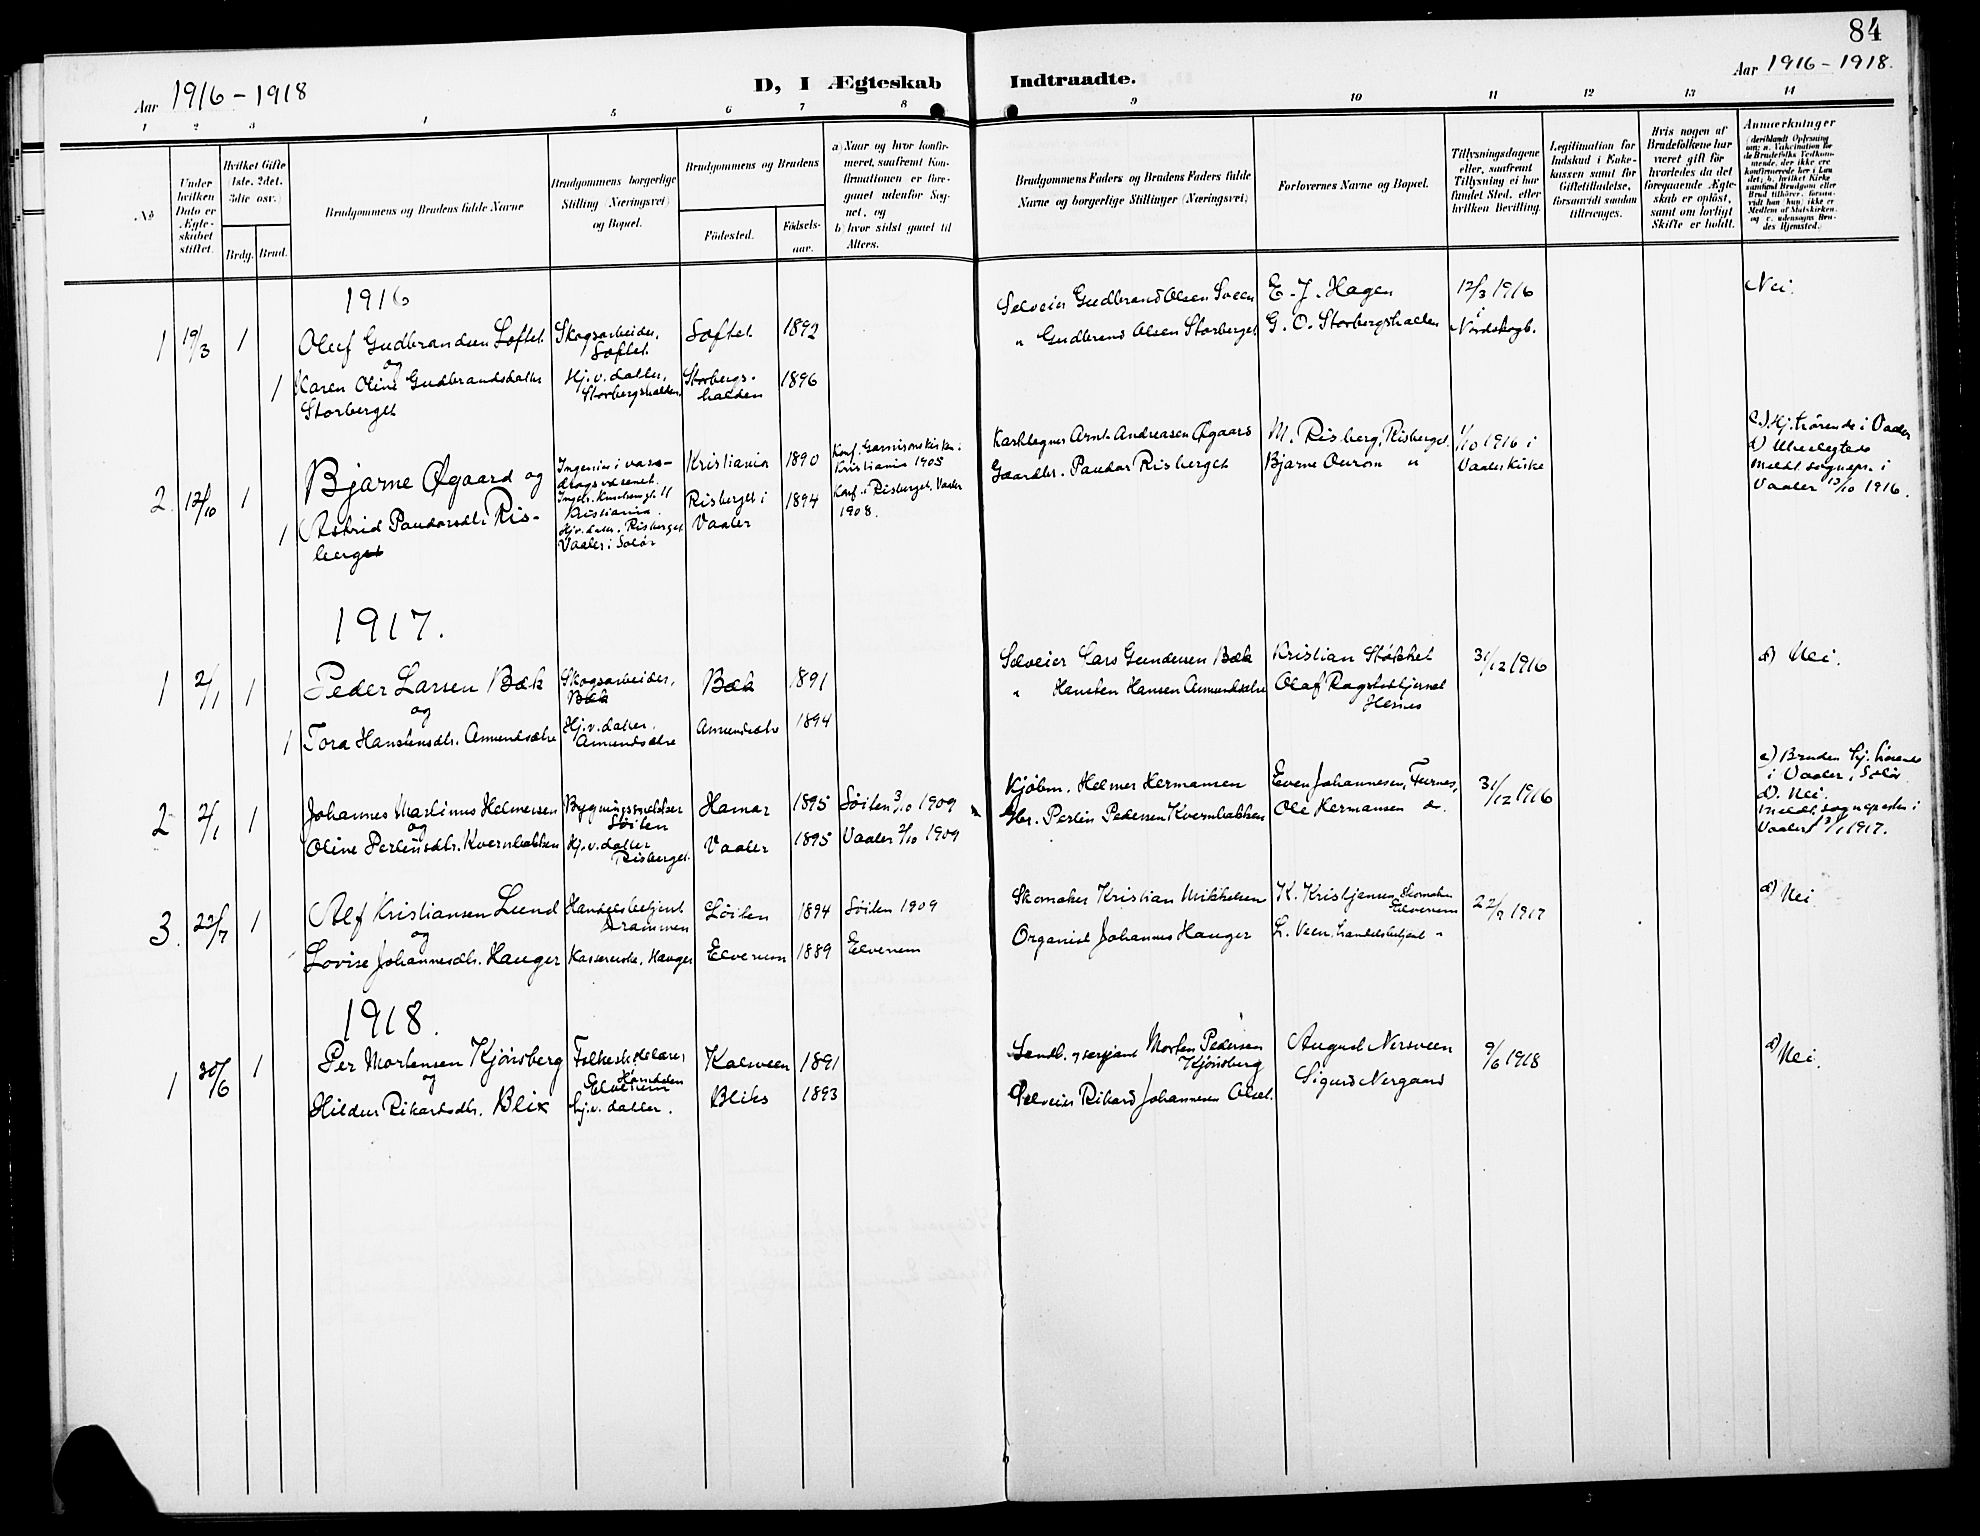 84
Aar 1916-1918
D, I Ægteskab Indtraadte.
Aar 1916-1918.
1 2 3 4 5 6 7 8 9 10 11 12 13 14
No
Under hvilken Dato er Ægteskabet stiftet.
Hvilket Gifte (1ste, 2det, 3die osv.)
Brdg. Brud.
Brudgommens og Brudens fulde Navne
Brudgommens borgerlige Stilling (Næringsvei) og Bopæl.
Brudgommens og Brudens
Fødested.
Fødselsaar.
a) Naar og hvor konfirmeret, saafremt Konfirmationen er foregaaet udenfor Sognet, og
b) hvor sidst gaaet til Alters.
Brudgommens Faders og Brudens Faders fulde Navne og borgerlige Stillinger (Næringsvei)
Forlovernes Navne og Bopæl.
Tillysningsdagene eller, saafremt Tillysning ei har fundet Sted, efter hvilken Bevilling.
Legitimation for Indskud i Enkekassen samt for Giftetilladelse, forsaavidt saadan tiltrænges.
Hvis nogen af Brudefolkene har været gift før hvorledes da det foregaaende Ægteskab er opløst, samt om lovligt Skifte er holdt.
Anmærkninger
1916
1 19/3 1 Oluf Gudbrandsen Løftet Skogsarbeider, Løftet Løftet 1892
og
1 Karen Oline Gudbrandsdatter Storberget Hj.v. datter, Storbergshalden Storbergshalden 1896
Selveier Gudbrand Olsen Sveen E. J. Hagen 12/3 1916 Nei.
" Gudbrand Olsen Storberget G. O. Storbergshalden Nordskogb.
2. 12/10 1 Bjarne Øgaard og Ingeniør i vassdragsvesenet. Kristiania Kristiania 1890 Konf. Garnisonskirken i Kristiania 1905
1 Astrid Paudorsdtr. Risberget Hj.v. datter, Risberget Vaaler i Solør Risberget i Vaaler 1894 Konf. i Risberget, Vaaler 1908.
Arnt Andreasen Øgaard M. Risberg, Risberget 1/10 1916 i Vaaler kirke
Gaardbr. Paudor Risberget Bjarne "
Vaaler 13/10 1916.
1917.
1 2/1 1 Peder Larsen Bæk Skogsarbeider, Bæk Bæk 1891
og
1 Tora Hanstensdtr. Amundsætre Hj.v. datter, Amundsætre Amundsætre 1894
Selveier Lars Gundersen Bæk Kristian Støkket 31/12 1916 d) Nei.
" Hansten Hansen Amundsætre Olaf Hernes
2 2/1 1 Johannes Martinus Helmersen Bygningssnekker Løiten Hamar 1895 Løiten 3/10 1909
og
Oline Perlensdtr. Kvernbakken Hj.v. datter Risberget Vaaler 1895 Vaaler 2/10 1909
Kjøbm. Helmer Hermansen Even Johannesen, Furnes, 31/12 1916
Gbr. Perlin Pedersen Kvernbakken Ole Hermansen do.
c) Bruden hj. hørende i Vaaler, Solør
d). Nei.
meldt sogneprsten i Vaaler 13/1 1917.
3. 22/7 1 Alf Kristiansen Lund Handelsbetjent Drammen Løiten 1894 Løiten 1909
og
Lovise Johannesdtr. Hauger Kassererske, Hauger Elverum 1889 Elverum
Skomaker Kristian Mikkelsen K. Kristjensen, Skomaker Elverum 22/7 1917 d) Nei
Organist Johannes Hauger L. Veen, handelsbetjent "
1918.
1 30/6 1 Per Mortensen Kjønsberg Folkeskolelærer, Elverum Kalsveen 1891
og
Hildur Rikardsdtr. Blix hj.v. datter. Bliks 1893
Landb. og sersjant Morten Pedersen Kjønsberg August Nersveen 9/6 1918 d) Nei.
Selveier Rikard Johannesen Olset. Sigurd Nergaard